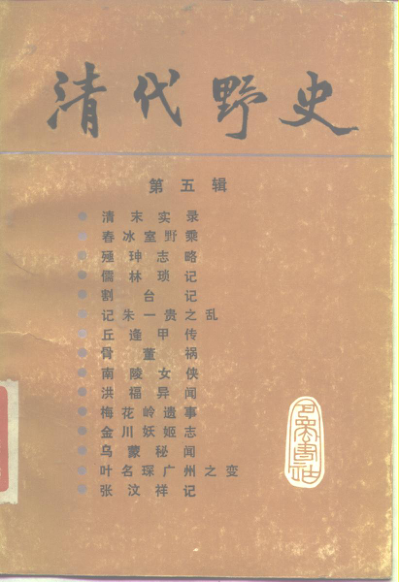 清代野史
第五辑
清末实录
春冰室野乘
殛珅志略
儒林琐记
割台记
记朱一贵之乱
丘逢甲传
骨董祸
南陵女侠
洪福异闻
梅花岭遗事
金川妖姬志
乌蒙秘闻
叶名琛广州之变
张汶祥记
巴蜀书社